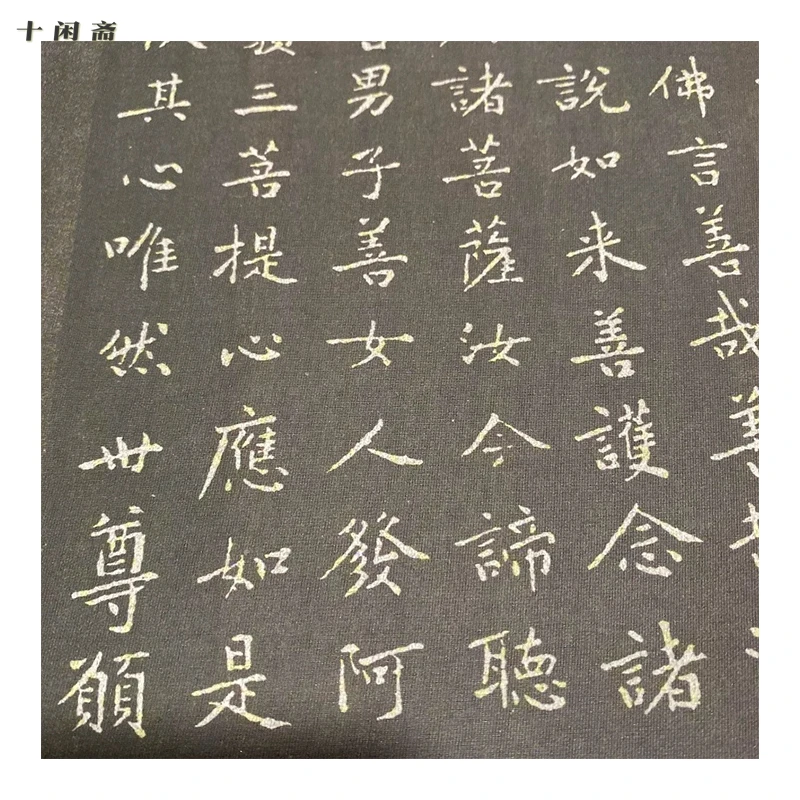 十闲斋
佛言善哉善
說如来善護念諸
諸菩薩汝今諦聽
男子善女人發阿
三菩提心應如是
其心唯然世尊願